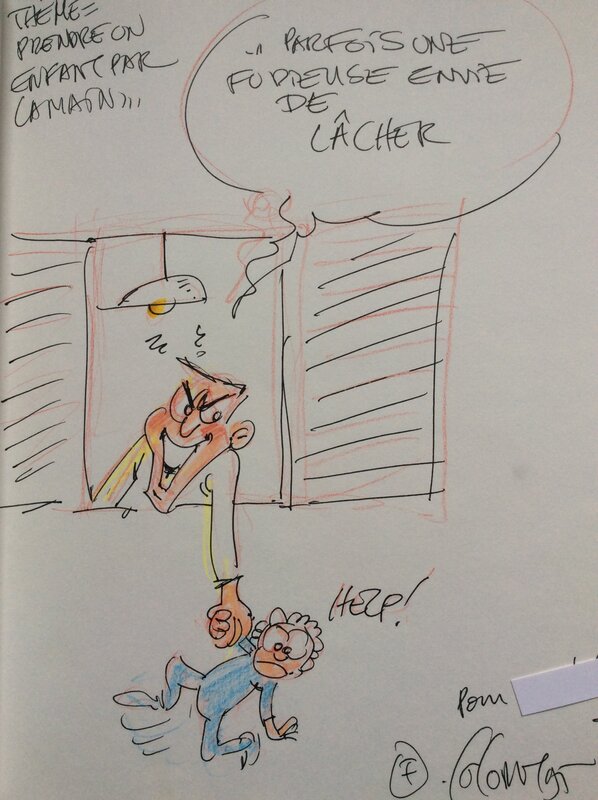 THÈME=
PRENDRE UN
ENFANT PAR
LA MAIN...
... PARFOIS UNE
FURIEUSE ENVIE
DE
LÂCHER
HELP!
Pour